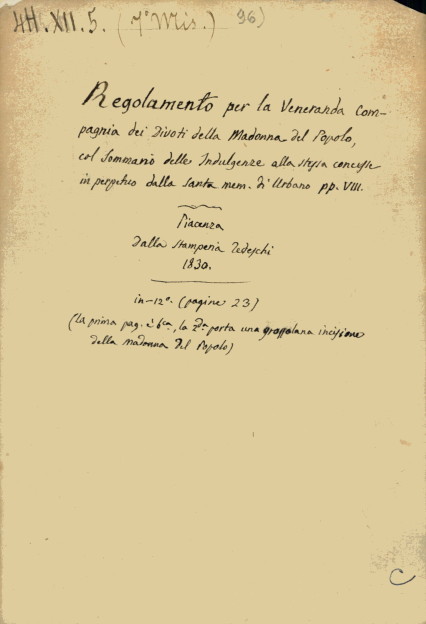 4H.XII.5. (7° Mis.) 96)
Regolamento per la Veneranda Com-
pagnia dei Divoti della Madonna del Popolo,
col Sommario delle Indulgenze alla stessa concesse
in perpetuo dalla santa mem. di Urbano pp. VIII.
Piacenza
dalla stamperia Tedeschi
1830.
in-12°. (pagine 23)
(La prima pag. è bca, la 2da porta una grossolana incisione
della Madonna del Popolo)
C